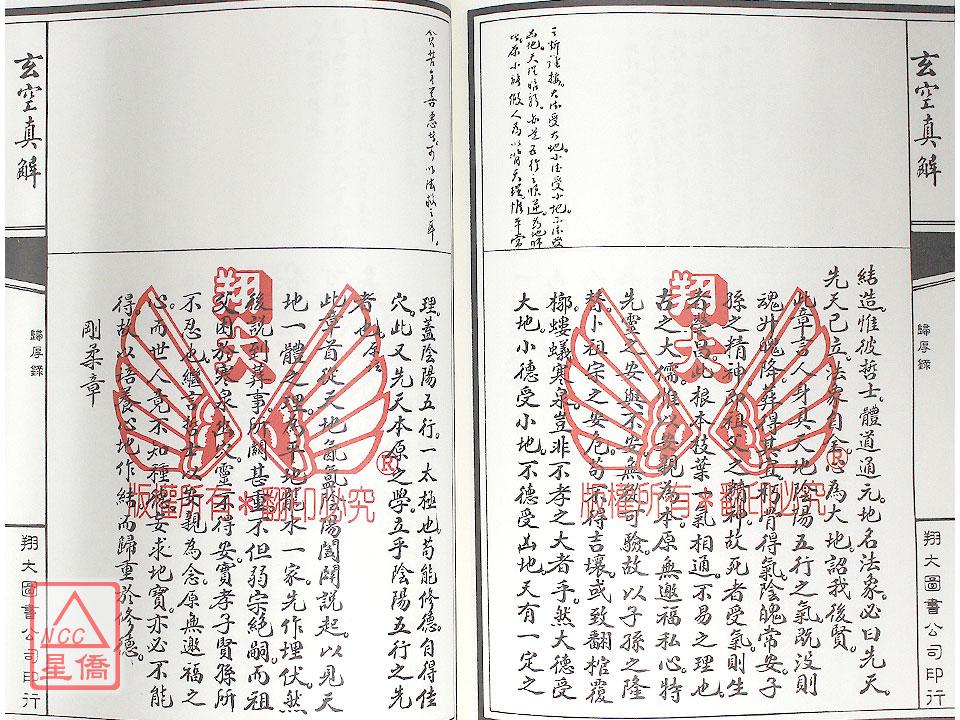 玄空真解
歸厚錄
翔大圖書公司印行
結造。惟彼哲士。體道通元。地名法家。必曰先天。
先天已立。法象自全。心為大地。詔我後賢。
此章言人身具天地陰陽五行之氣。既沒則
魂升魄降。葬得其宜。朽骨得氣。陰魄常安。子
孫之精神。即祖父之精神。故死者受氣。則生
者榮昌。此根本枝葉一氣相通。不易之理也。
古之大儒。惟以安親為本。原無邀福私心。特
先靈之安與不安。無從可驗。故以子孫之隆
替。卜祖宗之安危。苟不得吉壤。或致翻棺覆
槨。螻蟻寒泉。豈非不孝之大者乎。然大德受
大地。小德受小地。不德受凶地。天有一定之
理。蓋陰陽五行。一太極也。苟能修德。自得佳
穴。此又先天本原之學。立乎陰陽五行之先
者也。
此章首從天地氤氳陰陽闔闢說起。以見天
地一體之理。為平地龍水一家。先作埋伏。然
後說到葬事。所關甚重。不但弱宗絕嗣。而祖
父困於寒泉。先靈不得安。實孝子賢孫所
不忍也。繼言哲士以安親為念。原無邀福之
心。而世人竟不知種德。妄求地寶。亦必不能
得。故以培養心地作結。而歸重於修德。
剛柔章
玄空真解
歸厚錄
翔大圖書公司印行
翔大
版權所有*翻印必究
®
翔大
版權所有*翻印必究
®
NCC
星僑